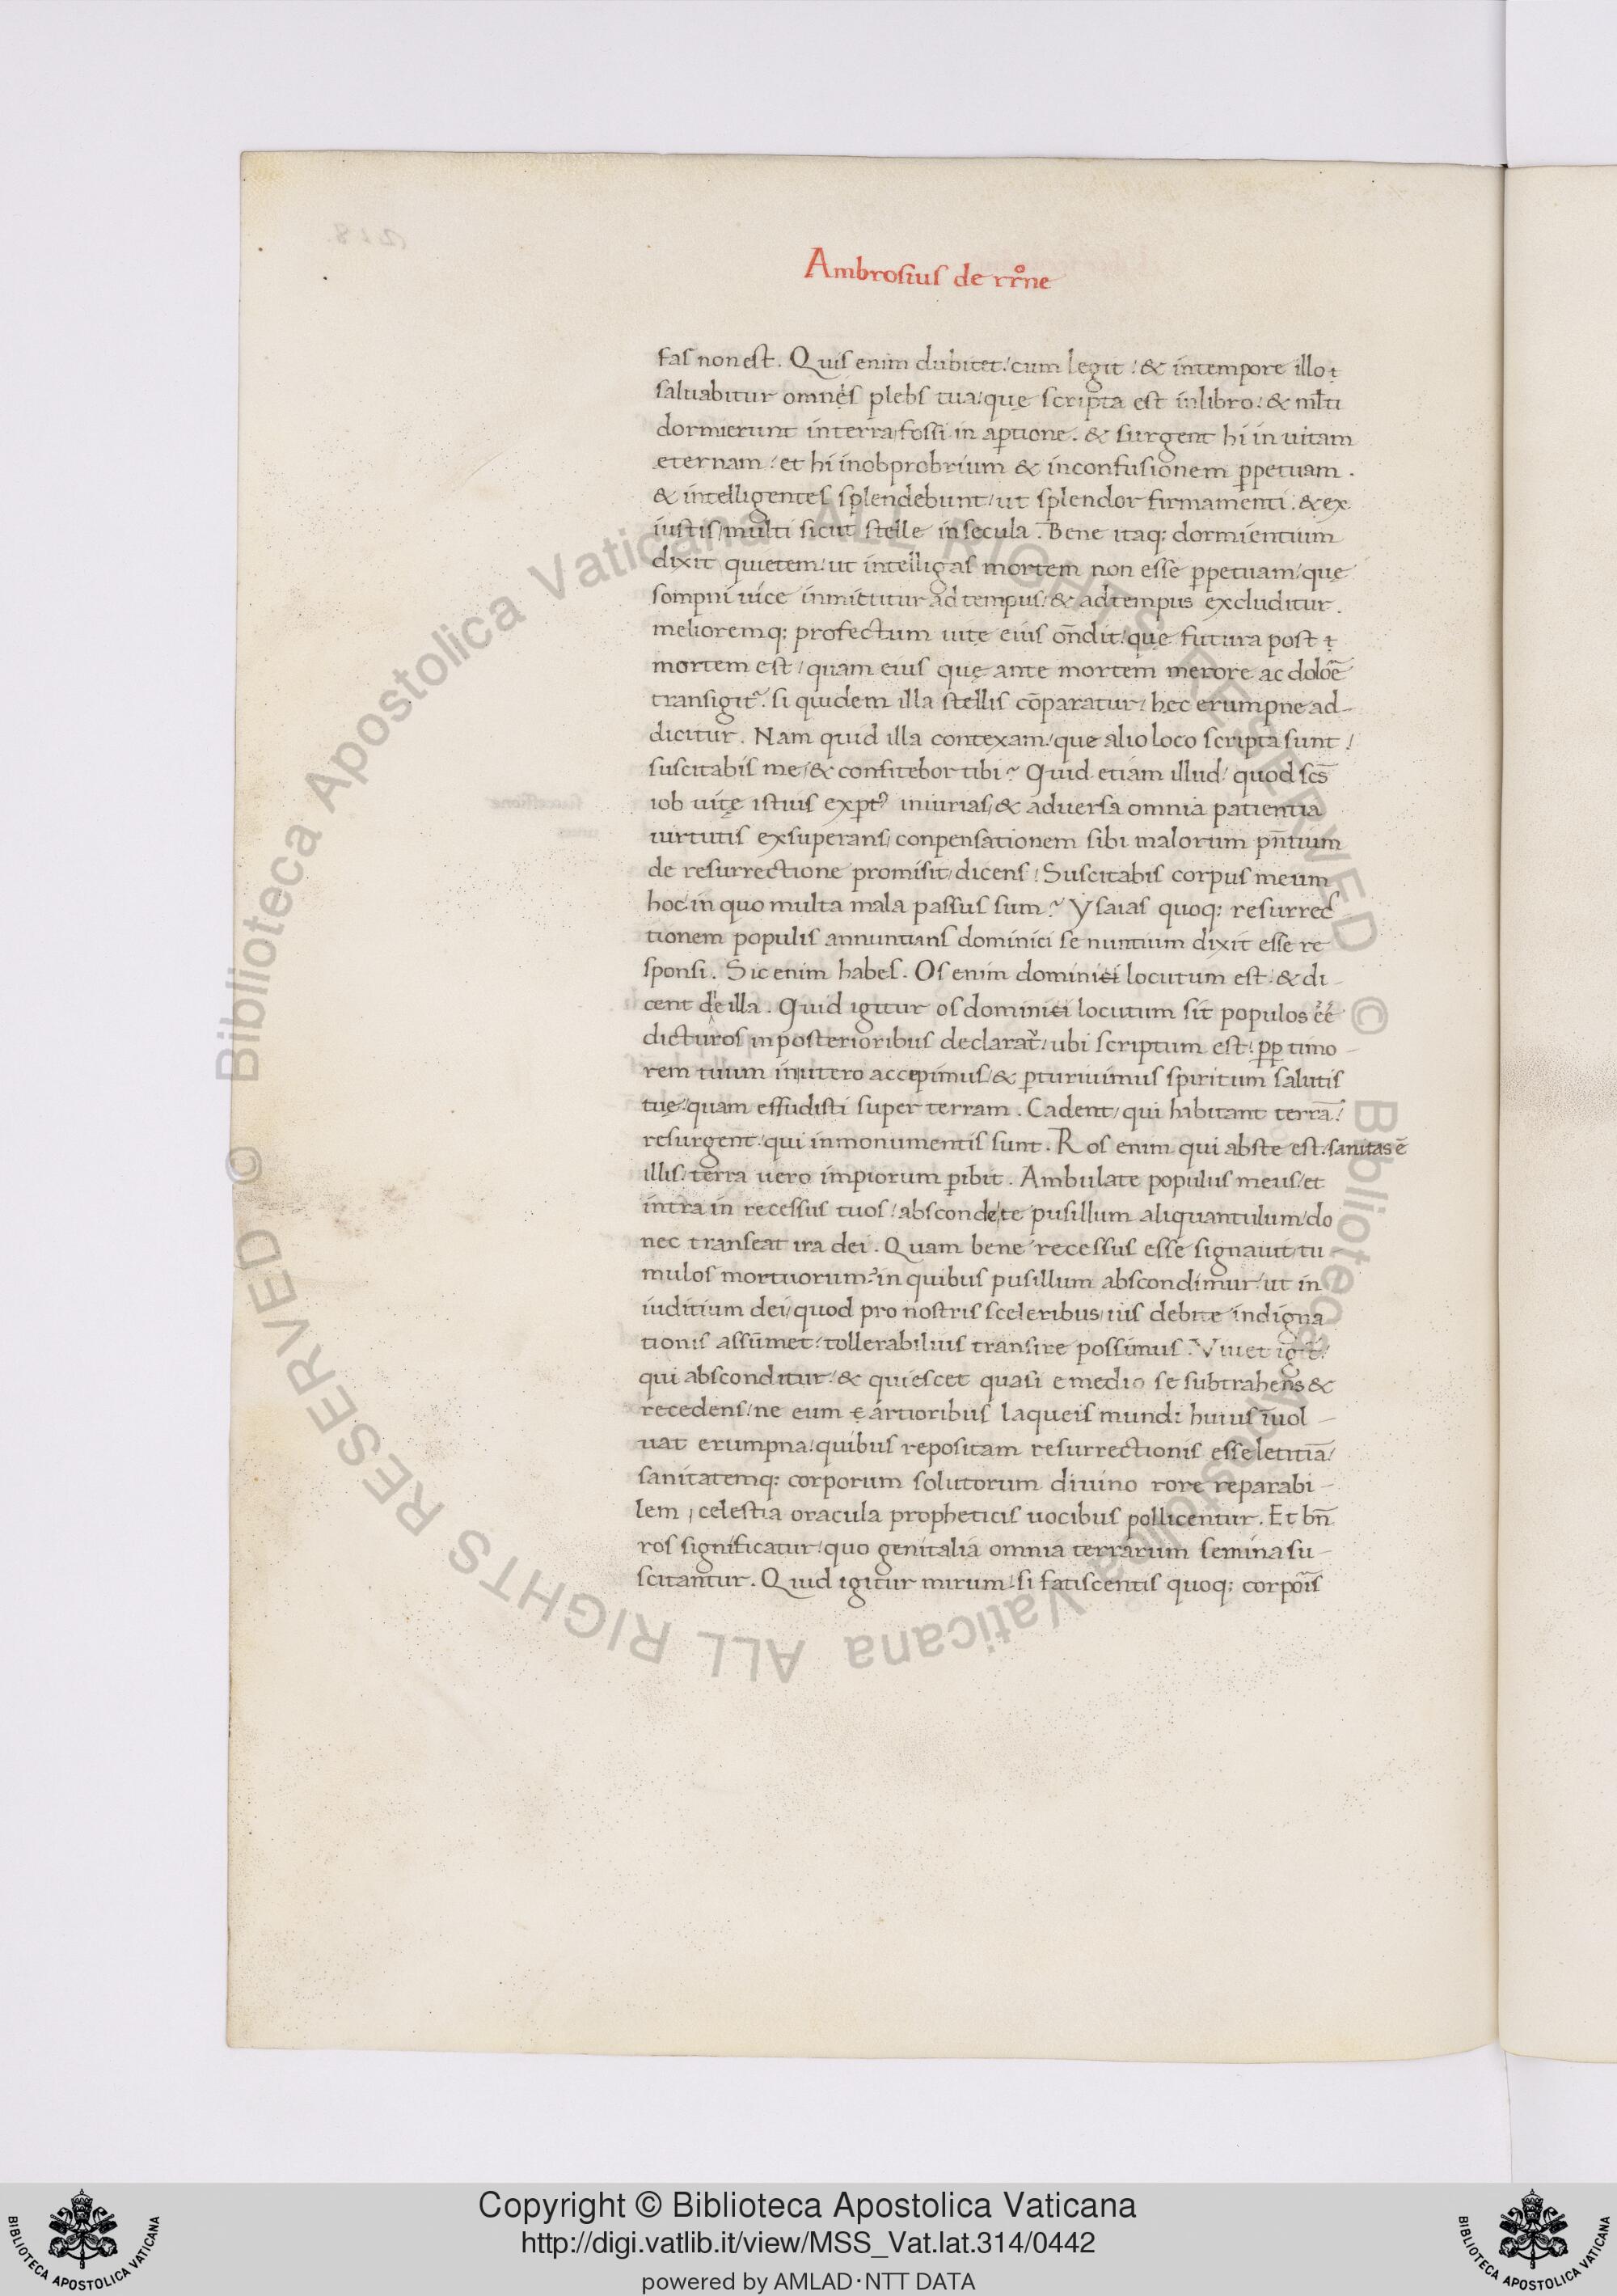 Ambrosius de rr̊ne
fas non est. Quis enim dubitet/ cum legit/ & in tempore illo
saluabitur omnes plebs tua/ quę scripta est in libro/ & ml̅ti
dormierunt in terra fossi in aꝑtione. & surgent hi in uitam
eternam/ et hi in obprobrium & in confusionem ꝑpetuam.
& intelligentes splendebunt/ ut splendor firmamenti. & ex
iustis/ multi sicut stelle in secula. Bene itaq; dormientium
dixit quietem/ ut intelligas mortem non esse ꝑpetuam/ quę
sompni uice inmittitur ad tempus/ & ad tempus excluditur.
melioremq; profectum uitę eius on̄dit/ quę futura post
mortem est/ quam eius quę ante mortem merore ac dolo᷒ē
transigit᷑. si quidem illa stellis cōparatur/ hęc erumpne ad-
dicitur. Nam quid illa contexam/ que alio loco scripta sunt/
suscitabis me/ & confitebor tibi? Quid etiam illud/ quod scs̄
iob uitę istius exꝑtꝰ iniurias/ & aduersa omnia patientia
uirtutis exsuperans/ conpensationem sibi malorum pn̄tium
de resurrectione promisit/ dicens/ Suscitabis corpus meum
hoc/ in quo multa mala passus sum? Ysaias quoq; resurrec
tionem populis annuntians dominici se nuntium dixit esse re
sponsi. Sic enim habes. Os enim dominici locutum est/ & di-
cent de illa. Quid igitur os dominici locutum sit populos éé
dicturos in posterioribus declarat᷑/ ubi scriptum est/ ꝓꝑ timo-
rem tuum in utero accepimus/ & ꝑturiuimus spiritum salutis
tuę/ quam effudisti super terram. Cadent/ qui habitant terrā/
resurgent/ qui in monumentis sunt. Ros enim qui abs te est/ sanitas ē
illis/ terra uero impiorum ꝑibit. Ambulate populus meus/ et
intra in recessus tuos/ abscondete pusillum aliquantulum/ do
nec transeat ira dei. Quam bene recessus esse signauit/ tu
mulos mortuorum? in quibus pusillum abscondimur/ ut in
iuditium dei/ quod pro nostris sceleribus/ uis debite indigna
tionis assumet/ tollerabilius transire possimus. Viuet
qui absconditur/ & quiescet quasi e medio se subtrahens &
recedens/ ne eum artioribus laqueis mundi huius īuol-
uat erumpna/ quibus repositam resurrectionis esse letitiā/
sanitatemq; corporum solutorum diuino rore reparabi-
lem/ celestia oracula propheticis uocibus pollicentur. Et bn̄
ros significatur/ quo genitalia omnia terrarum semina su-
scitantur. Quid igitur mirum/ si fatiscentis quoq; corpo᷒is
Copyright © Biblioteca Apostolica Vaticana
http://digi.vatlib.it/view/MSS_Vat.lat.314/0442
powered by AMLAD·NTT DATA
BIBLIOTECA APOSTOLICA VATICANA
BIBLIOTECA APOSTOLICA VATICANA
© Biblioteca Apostolica Vaticana ALL RIGHTS RESERVED © Biblioteca Apostolica Vaticana ALL RIGHTS RESERVED